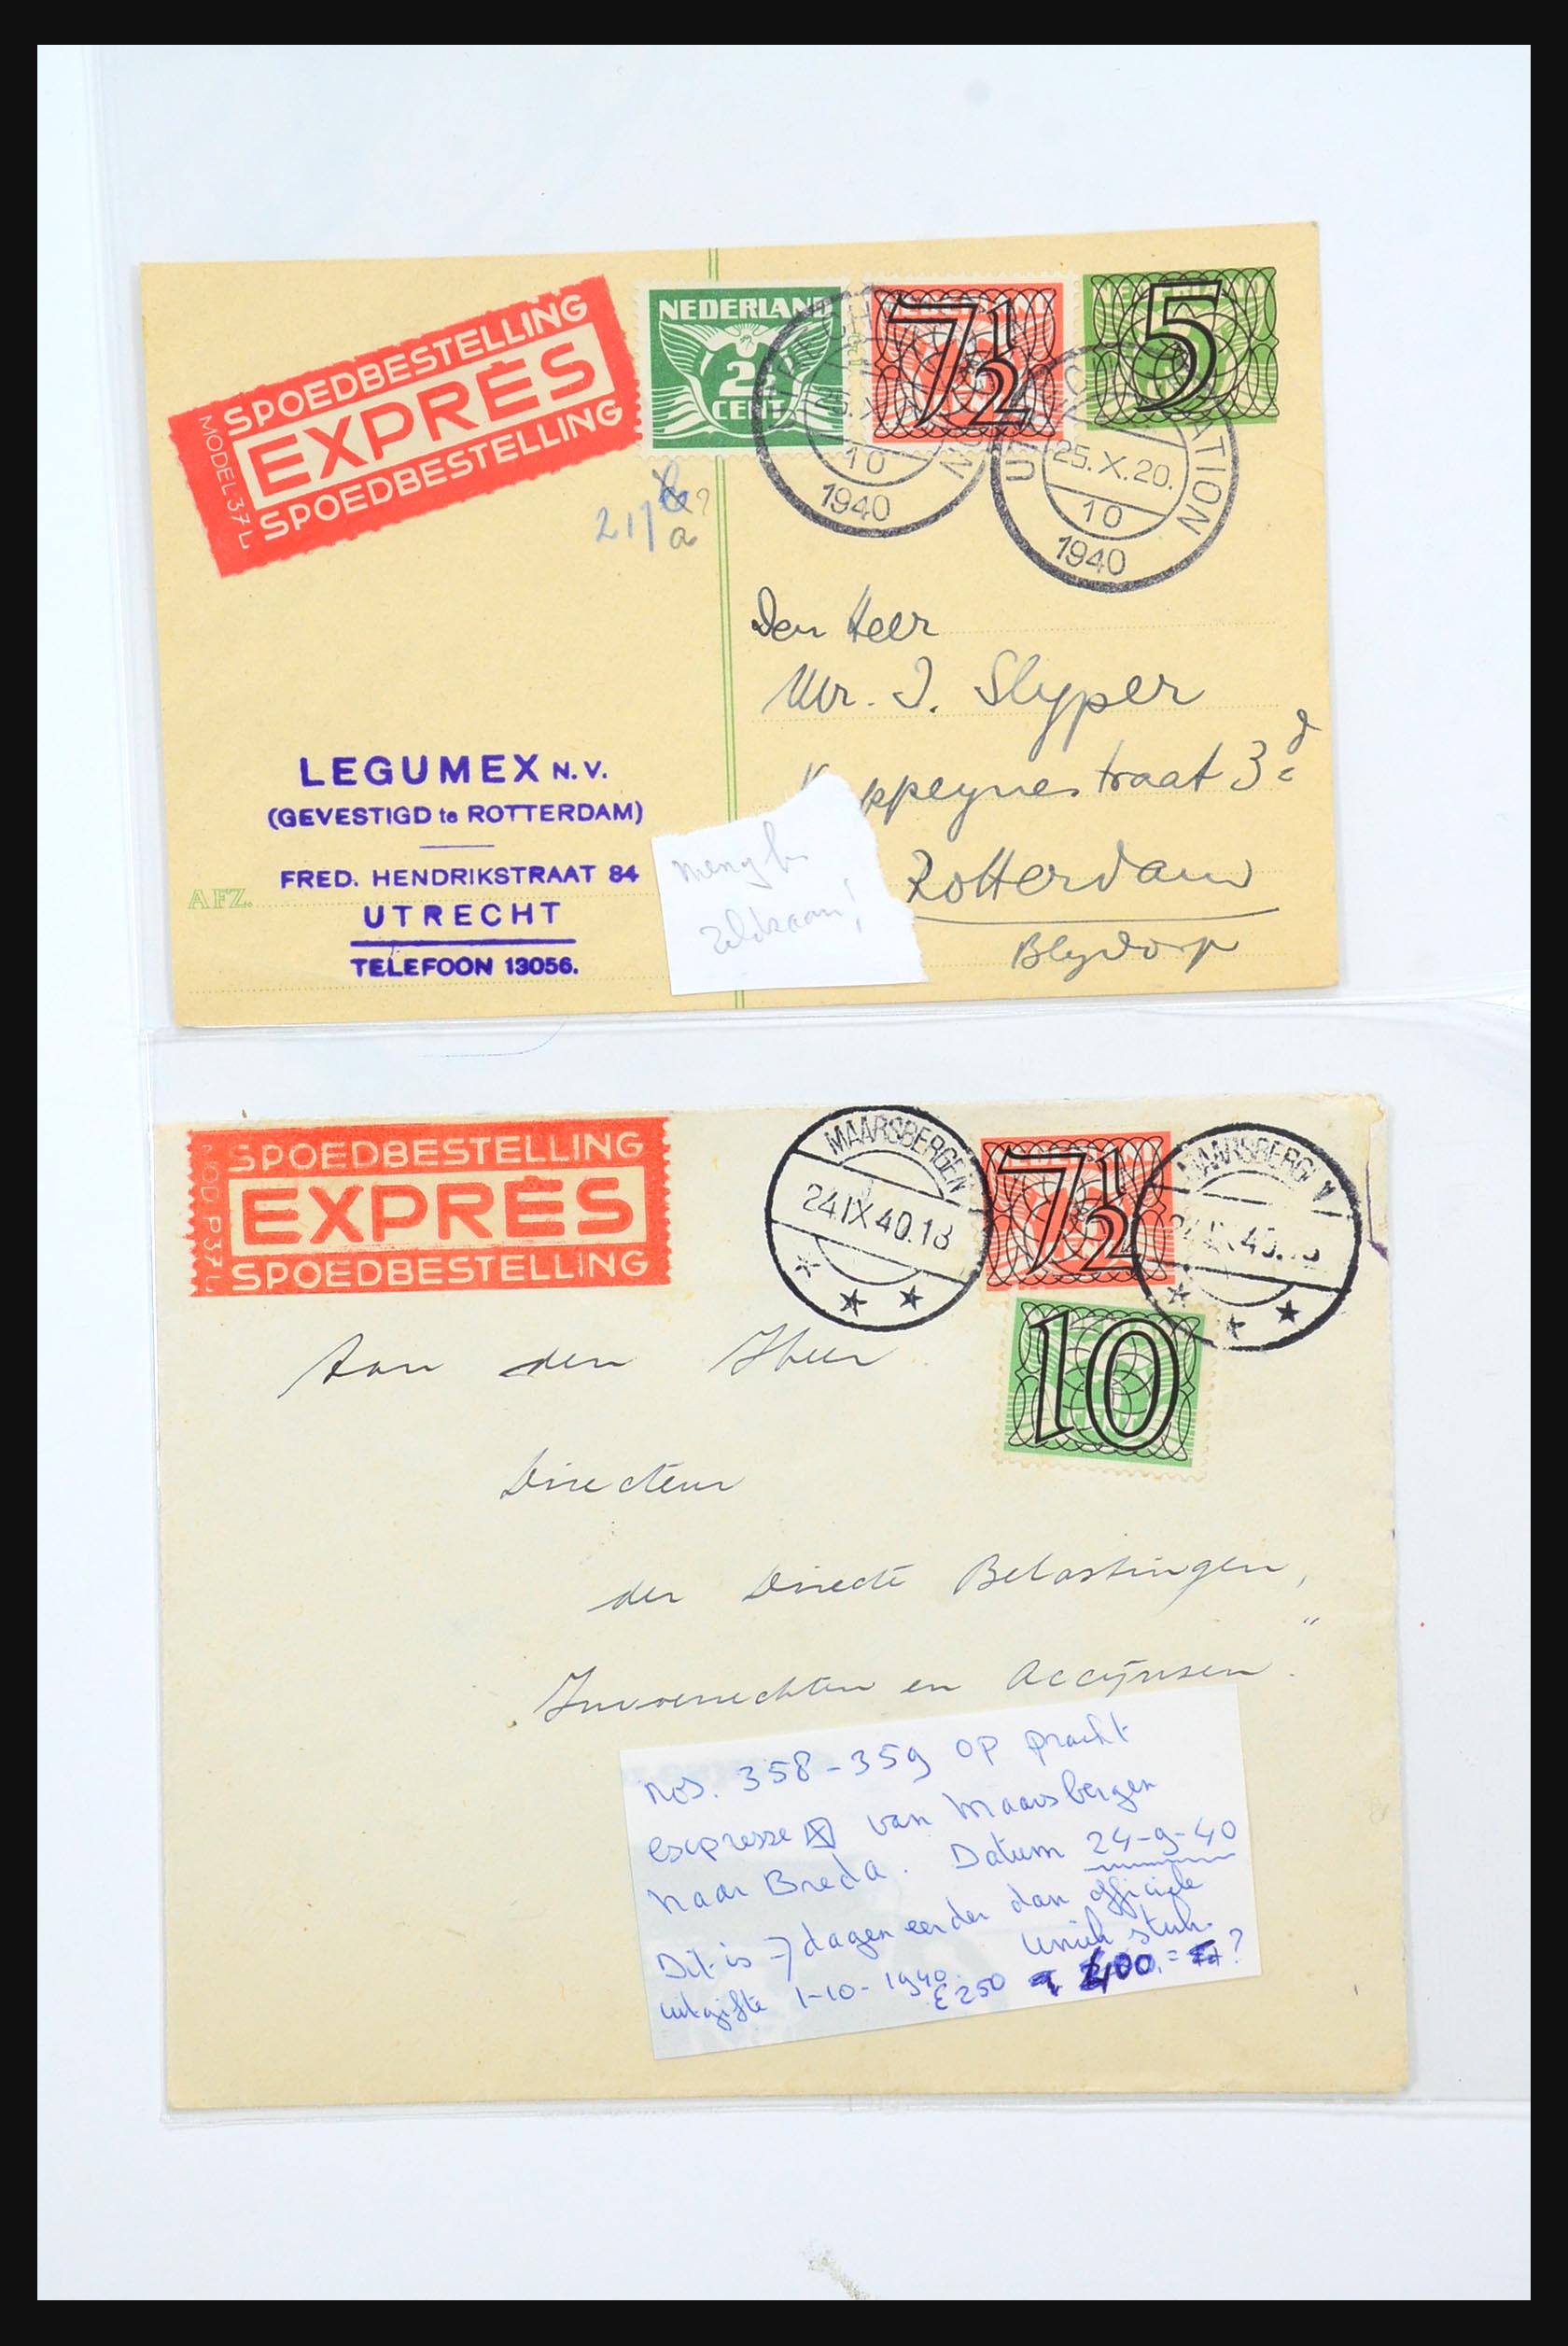 SPOEDBESTELLING
EXPRES
SPOEDBESTELLING
MODEL 37 L
NEDERLAND
2½
CENT
7½
5
10
1940
STATION
25.X.20.
10
1940
217
a
?
Den Heer
Mr. J. Slyper
straat 3
Rotterdam
Blydorp
LEGUMEX N.V.
(GEVESTIGD te ROTTERDAM)
FRED. HENDRIKSTRAAT 84
AFZ.
UTRECHT
TELEFOON 13056.
SPOEDBESTELLING
EXPRES
SPOEDBESTELLING
MAARSBERGEN
24.IX.40.18
7½
MAARSBERGEN
10
Aan den Heer
Directeur
der Directe Belastingen,
Invoerrechten en Accijnsen.
nos. 358-359 op pracht
expresse van Maarsbergen
naar Breda. Datum 24-9-40
Dit is 7 dagen eerder dan officiele
uitgifte 1-10-1940. Uniek stuk.
£250 400,= ?